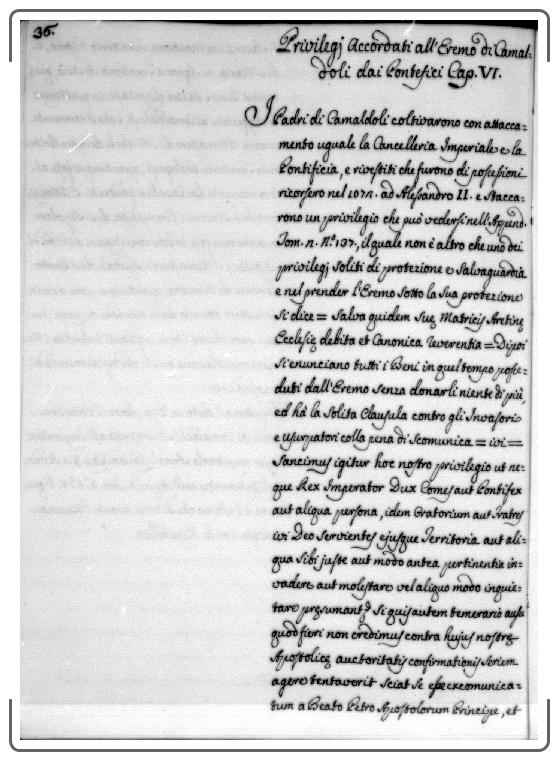 36.
Privilegj Accordati all'Eremo di Camal=
doli dai Pontefici Cap. VI.
I Padri di Camaldoli coltivarono con attacca=
mento uguale la Cancelleria Imperiale e la
Pontificia, e rivestiti che furono di possessioni
ricorsero nel 1072. ad Alessandro II. e stacca=
rono un privilegio che può vedersi nell'Append.
Tom. 2. N.° 137., il quale non è altro che uno dei
privilegj soliti di protezione e salvaguardia
e nel prender l'Eremo sotto la sua protezione
si dice = Salva quidem suę Matricis Aretinę
Ecclesię debita et Canonica reverentia = Dipoi
si enunciano tutti i Beni in quel tempo posse=
duti dall'Eremo senza donarli niente di più,
ed hà la solita Clausula contro gli Invasori
e usurpatori colla pena di Scomunica = ivi =
Sancimus igitur hoc nostro privilegio ut ne=
que Rex Imperator Dux Comes aut Pontifex
aut aliqua persona, idem Oratorium aut Fratres
ivi Deo Servientes ejusque Territoria aut ali=
qua sibi juste aut modo antea pertinentia in=
vadere aut molestare vel aliquo modo inquie=
tare pręsumant Si quis autem temerario ausu
quod fieri non credimus contra hujus nostrę
Apostolicę auctoritatis confirmationis seriem
agere tentaverit sciat se esse excomunica=
tum a Beato Petro Apostolorum Principe, et